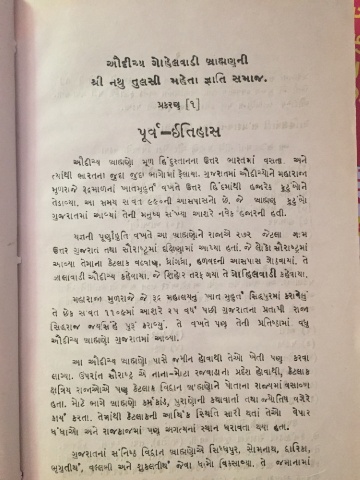 ઔદીચ્ય ગોહેલવાડી બ્રાહ્મણની
શ્રી નથુ તુલસી મહેતા જ્ઞાતિ સમાજ.
પ્રકરણ [૧]
પૂર્વ–ઈતિહાસ
ઔદીચ્ય બ્રાહ્મણો મૂળ હિંદુસ્તાનના ઉત્તર ભારતમાં વસતા. અને
ત્યાંથી ભારતના જુદા જુદા ભાગોમાં ફેલાયા. ગુજરાતમાં ઔદીચ્યોને મહારાજ
મુળરાજે રૂદ્રમાળના ખાતમુહૂર્ત વખતે ઉત્તર હિંદમાંથી હજારેક કુટુંબોને
તેડાવ્યા. આ સમય સંવત ૯૯૦ની આસપાસનો છે. જે બ્રાહ્મણ કુટુંબો
ગુજરાતમાં આવ્યાં તેની મનુષ્ય સંખ્યા આશરે નવેક હજારની હતી.
યજ્ઞની પૂર્ણાહુતિ વખતે આ બ્રાહ્મણોને રાજાએ ૨૭૨ જેટલા ગામ
ઉત્તર ગુજરાત તથા સૌરાષ્ટ્રમાં દક્ષિણામાં આપ્યા હતાં. જે લોકો સૌરાષ્ટ્રમાં
આવ્યા તેમાંના કેટલાક વઢવાણ, ધ્રાંગધ્રા, હળવદની આસપાસ ગોઠવાયાં. તે
ઝાલાવાડી ઔદીચ્ય કહેવાયા. જે શિહોર તરફ ગયા તે ગોહિલવાડી કહેવાયા.
મહારાજા મૂળરાજે જે રૂદ્ર મહાલયનું ખાત મુહૂર્ત સિદ્ધપુરમાં કરાવેલું
તે છેક સંવત ૧૧૦૯માં આશરે ૨૫ વર્ષ પછી ગુજરાતના પ્રતાપી રાજા
સિદ્ધરાજ જયસિંહે પુરૂં કરાવ્યું. તે વખતે પણ તેની પ્રતિષ્ઠામાં વધુ
ઔદીચ્ય બ્રાહ્મણો ગુજરાતમાં આવ્યા.
આ ઔદીચ્ય બ્રાહ્મણો પાસે જમીન હોવાથી તેઓ ખેતી પણ કરવા
લાગ્યા. ઉપરાંત સૌરાષ્ટ્ર એ નાના–મોટા રજવાડાનો પ્રદેશ હોવાથી, કેટલાક
ક્ષત્રિય રાજાઓએ પણ કેટલાક વિદ્વાન બ્રાહ્મણોને પોતાના રાજ્યમાં વસાવ્યા
હતા. મોટે ભાગે બ્રાહ્મણો કર્મકાંડ, પુરાણોની કથાવાર્તા તથા જ્યોતિષ વગેરે
કાર્ય કરતા. તેમાંથી કેટલાકની આર્થિક સ્થિતિ સારી થતાં તેઓ વેપાર
ધંધાઓ અને રાજકાજમાં પણ અગત્યનાં સ્થાન ધરાવતા થયા હતા.
ગુજરાતનાં સંનિષ્ઠ વિદ્વાન બ્રાહ્મણોએ સિધ્ધપુર, સોમનાથ, દ્વારિકા,
ભૃગુતીર્થ, વલ્લભી અને શુકલતીર્થ જેવા ધામો વિકસાવ્યા. તે જમાનામાં